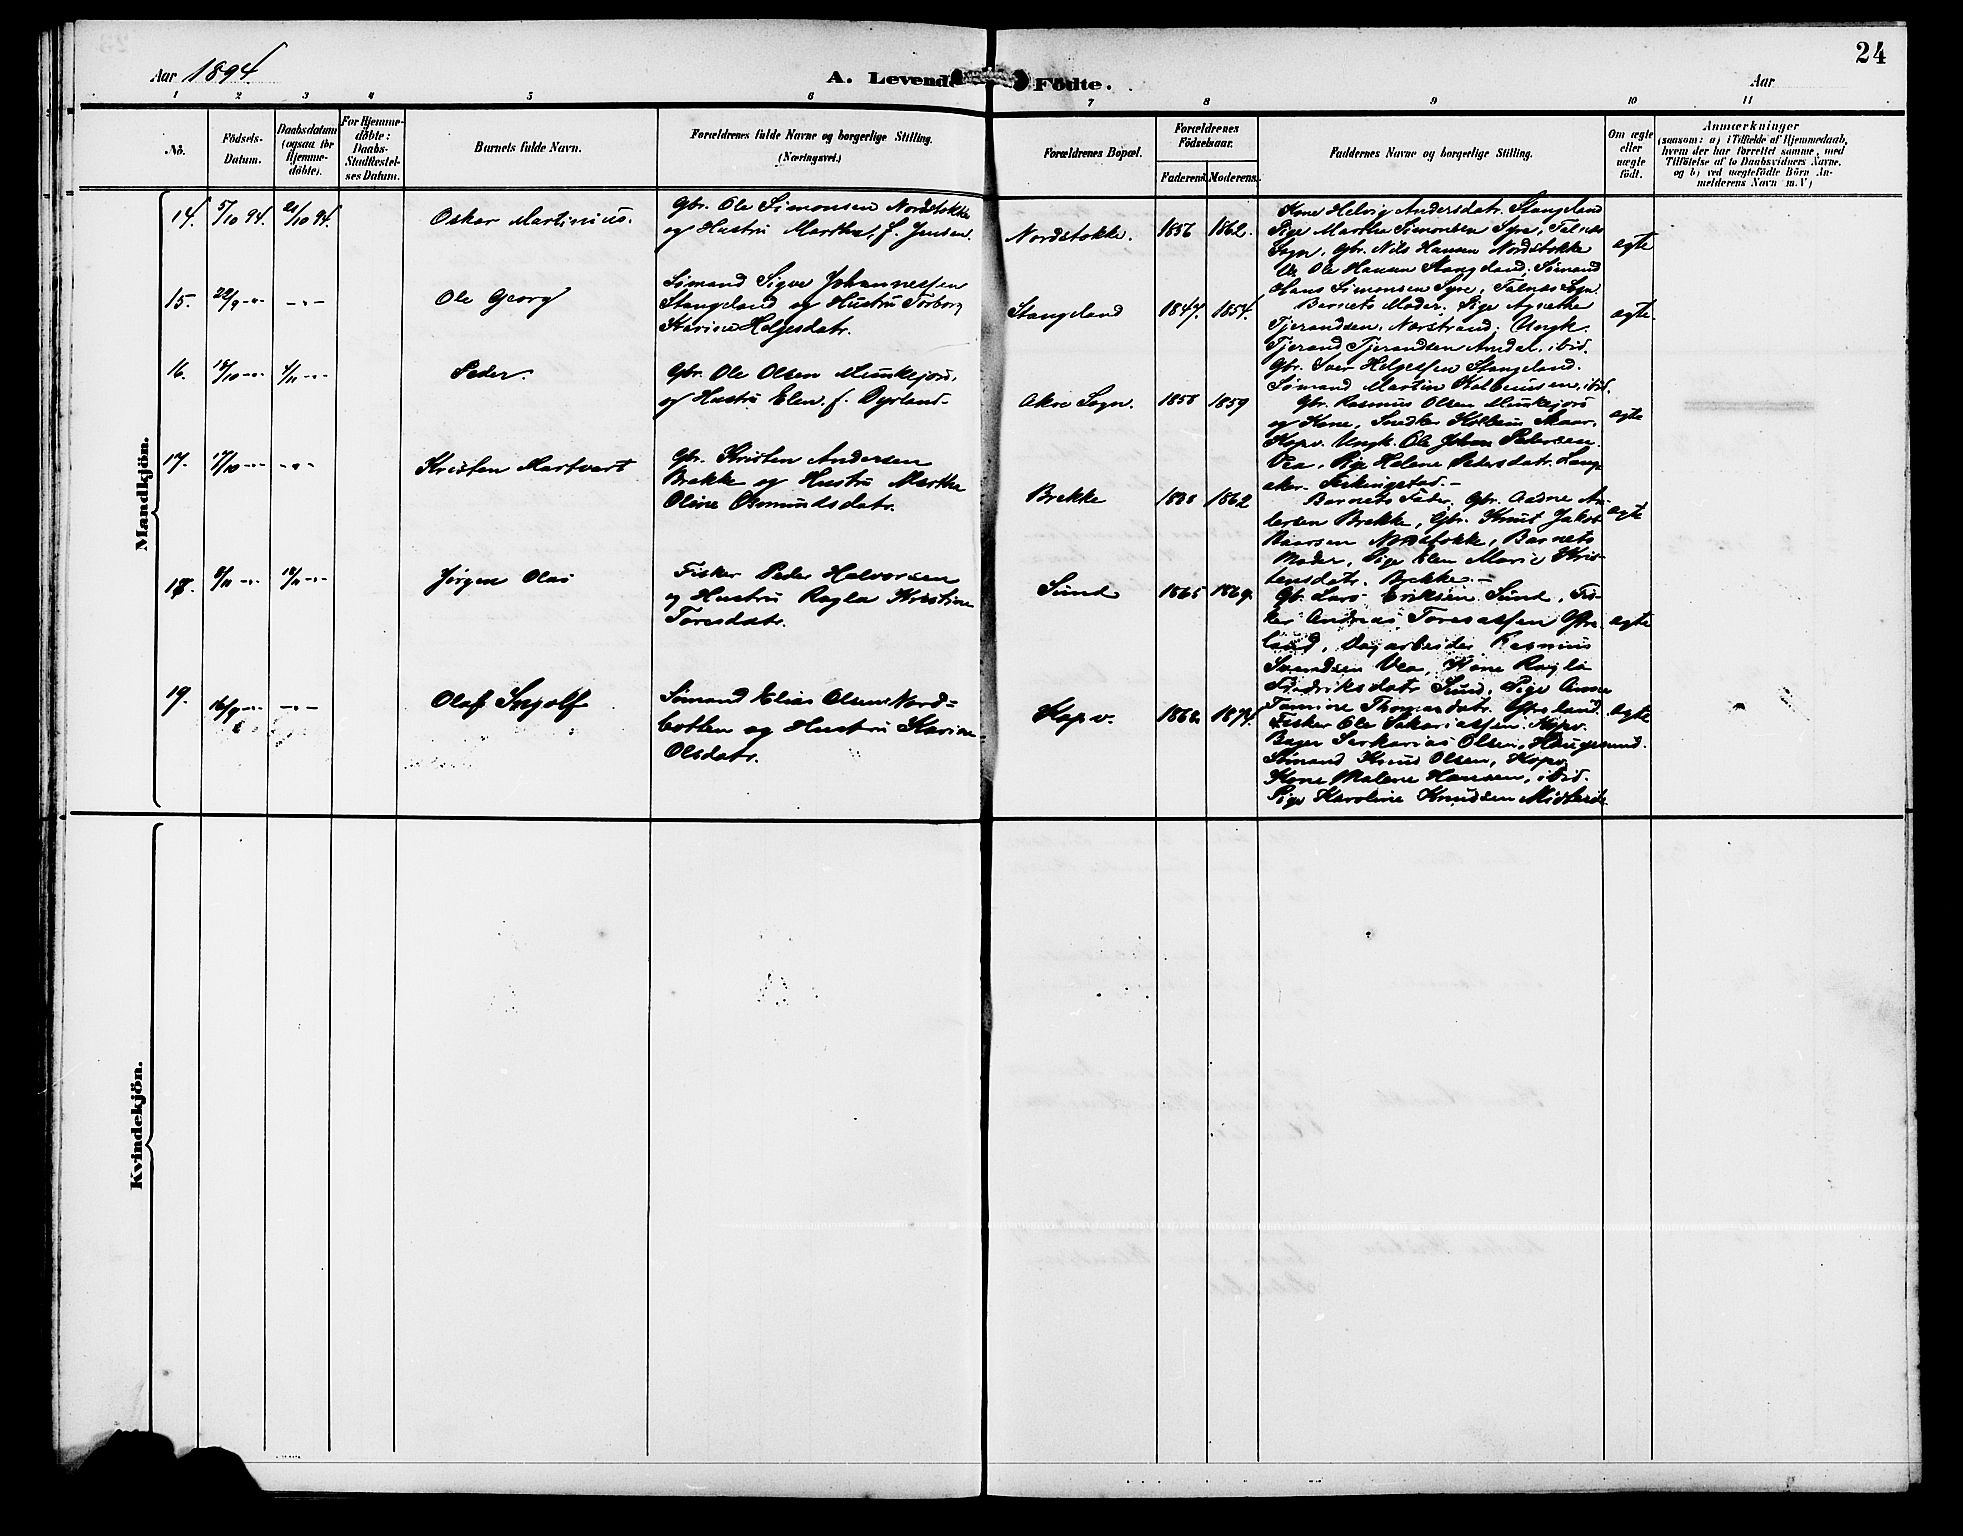 24
Aar 1894.
A. Levende Födte.
Aar
1 2 3 4 5 6 7 8 9 10 11
No.
Födsels-Datum.
Daabsdatum (ogsaa for Hjemme-döbte).
For Hjemme-döbte: Daabs-Stadfæstel-ses Datum.
Barnets fulde Navn.
Forældrenes fulde Navne og borgerlige Stilling. (Næringsvei.)
Forældrenes Bopæl.
Forældrenes Födselsaar.
Faderens. Moderens.
Faddernes Navne og borgerlige Stilling.
Om ægte eller uægte födt.
Anmærkninger
(saasom: a) i Tilfælde af Hjemmedaab,
hvem der har forrettet samme, med
Tilföielse af to Daabsvidners Navne,
og b) ved uægtefödte Börn An-
melderens Navn m. V.)
Mandkjön.
14. 5/10 94. 21/10 94.
Oskar Martinius.
Gbr. Ole Simonsen Nordstokke
og Hustru Marthe, f. Jensen.
Nordstokke.
1856 1862.
Kone Helvig Andersdatr. Stangeland
Pige Marthe Simonsen Syre, Falnæs
Sogn, Gbr. Nils Hansen Nordstokke
Ole Hansen Stangeland, Sømand
Hans Simonsen Syre, Falnæs Sogn.
ægte
15. 22/9 -"- -"-
Ole Georg
Sømand Sigve Johannessen
Stangeland og Hustru Torborg
Karine Helgesdatr.
Stangeland
1847. 1854.
Barnets Moder. Pige Agnethe
Tjerandsen, Nærstrand, Ungk.
Tjerand Tjerandsen Amdal, ibid.
Gbr. Iver Helgessen Stangeland.
Sømand Martin Kolbeinsen, ibid.
ægte.
16. 18/10 -"- 4/11 -"-
Peder.
Gbr. Ole Olsen Munkejors,
og Hustru Elen, f. Dyrland-
Akre Sogn.
1858 1859
Gbr. Rasmus Olsen Munkejors
og Kone, Snedker Kolbein Skaar,
Kopv. Ungk. Ole Johan Pedersen
Vea, Pige Helene Pedersdatr. Lang
aker Skeingstad.-
ægte
17. 17/10 -"- -"-
Kristen Martvart
Gbr. Kristen Andersen
Brekke og Hustru Marthe
Oline Osmundsdatr.
Brekke
1838 1862
Barnets Fader, Gbr. Aadne An-
dersen Brekke, Gbr. Knut Jakob
Baarsen Nordstokke, Barnets
Moder, Pige Elen Marie Kris-
tensdatr. Brekke.-
ægte
18. 9/11 -"- 18/11 -"-
Jørgen Olai
Fisker Peder Halvorsen
og Hustru Ragla Kristine
Toresdatr.
Sund
1865 1869.
Gb. Lars Eriksen Sund, Fis-
ker Andreas Toresassen Ytre-
land, Dagarbeider Rasmus
Svendsen Vea, Kone Ragla
Fredriksdatr Sund, Pige Anne
Tomine Thomasdatr. Ytreland.
ægte
19. 16/9 -"- -"-
Olaf Ingolf
Sømand Elias Olsen Nord-
botten og Hustru Karine
Olsdatr.
Kopv.
1868 1874.
Fisker Ole Sakariassen Kopv.
Bager Serkarias Olsen, Haugesund.
Sømand Knut Olsen, Kopv.
Kone Malene Hansen, ibid.
Pige Karoline Knudsen
ægte
Kvindekjön.